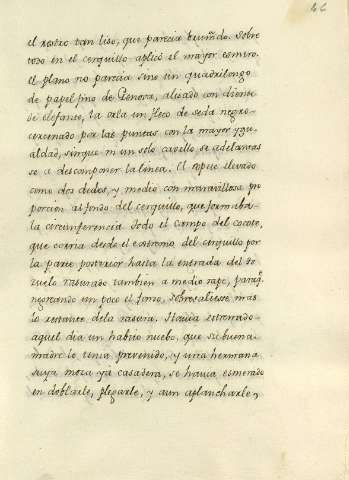 46
el rostro tan liso, que parecia bruñido. Sobre
todo en el cerquillo aplicó el mayor esmero.
El plano no parecia sino un quadrilongo
de papel fino de Genova, alisado con diente
de elefante, la orla un fleco de seda negro
cercenado por las puntas con la mayor ygu-
aldad, sinque ni un solo cavello se adelantas
se a descomponer la linea. El copete elevado
como dos dedos, y medio con maravillosa pro
porcion al fondo del cerquillo, que formaba
la circunferencia. Todo el campo del cocote,
que corria desde el extremo del cerquillo por
la parte posterior hasta la entrada del po
zuelo rasurado tambien a medio rape, paraq.
negreando un poco el fondo, sobresaliese mas
lo restante dela rasura. Havia estrenado
aquel dia un habito nuebo, que su buena
madre le tenia prevenido, y una hermana
suya moza ya casadera, se havia esmerado
en doblarle, plegarle, y aun aplancharle,